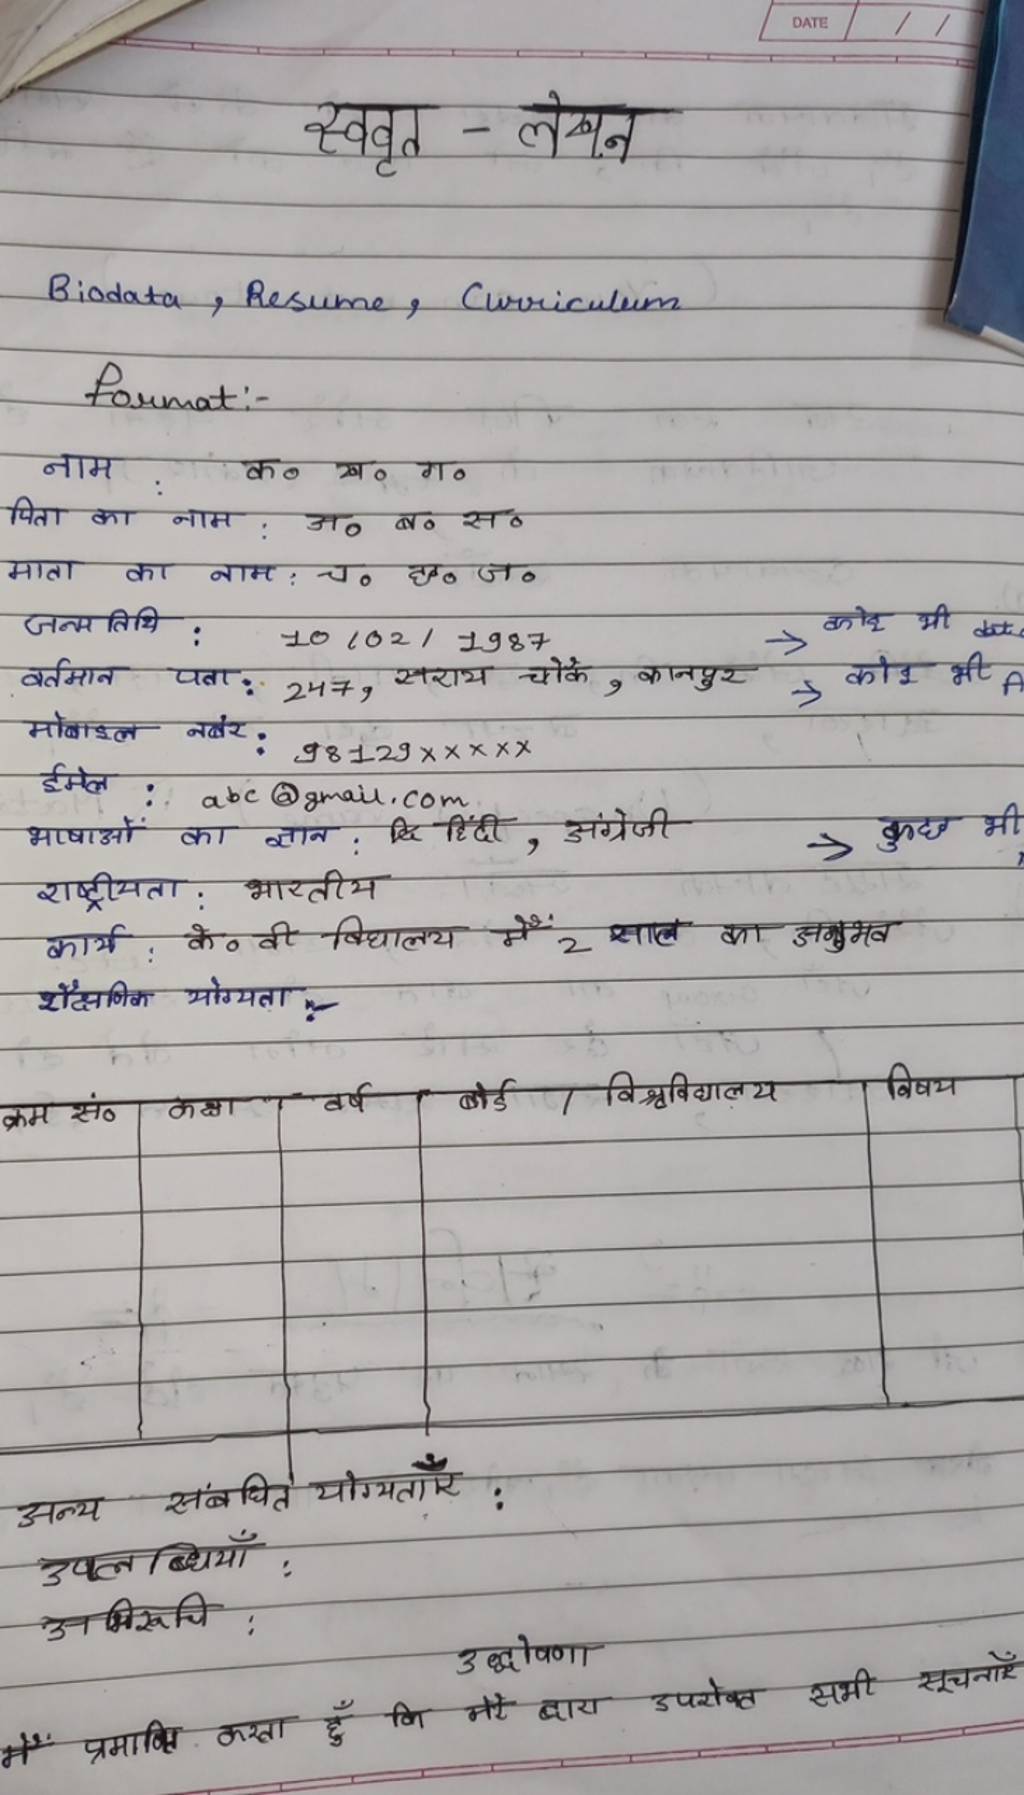 DATE / /
स्ववृत - लेखन
Biodata, Resume, Curriculum
Format:-
नाम : क० ख० ग०
पिता का नाम : अ० ब० स०
माता का नाम : च० छ० ज०
जन्म तिथि : 10/02/1987 → कोई भी date
वर्तमान पता : 247, सराय चौक, कानपुर → कोई भी
मोबाइल नबंर : 98129xxxxx
ईमेल : abc@gmail.com
भाषाओं का ज्ञान : हिंदी, अंग्रेजी → कुछ भी
राष्ट्रीयता : भारतीय
कार्य : के० वी विद्यालय में 2 साल का अनुभव
शैक्षणिक योग्यता :-
क्रम सं० कक्षा वर्ष बोर्ड / विश्वविद्यालय विषय
अन्य संबधित योग्यताएँ :
उपलब्धियाँ :
अभिरूचि :
उद्घोषणा
मैं प्रमाणित करता हूँ कि मेरे द्वारा उपरोक्त सभी सूचनाएँ